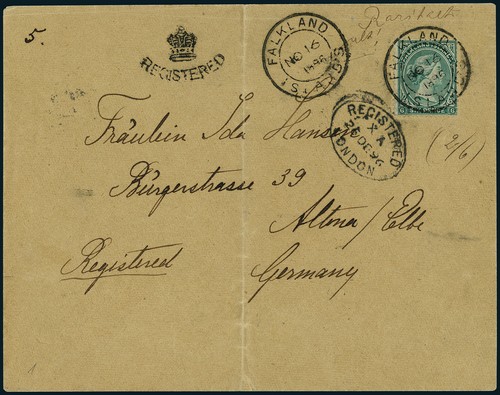 5.
REGISTERED
FALKLAND ISLANDS
NO 16
1896
FALKLAND
NO 16
1896
REGISTERED
26 DE 96
LONDON
(2/6)
Fräulein Ida Hansen
Bürgerstrasse 39
Altona/Elbe
Registered
Germany